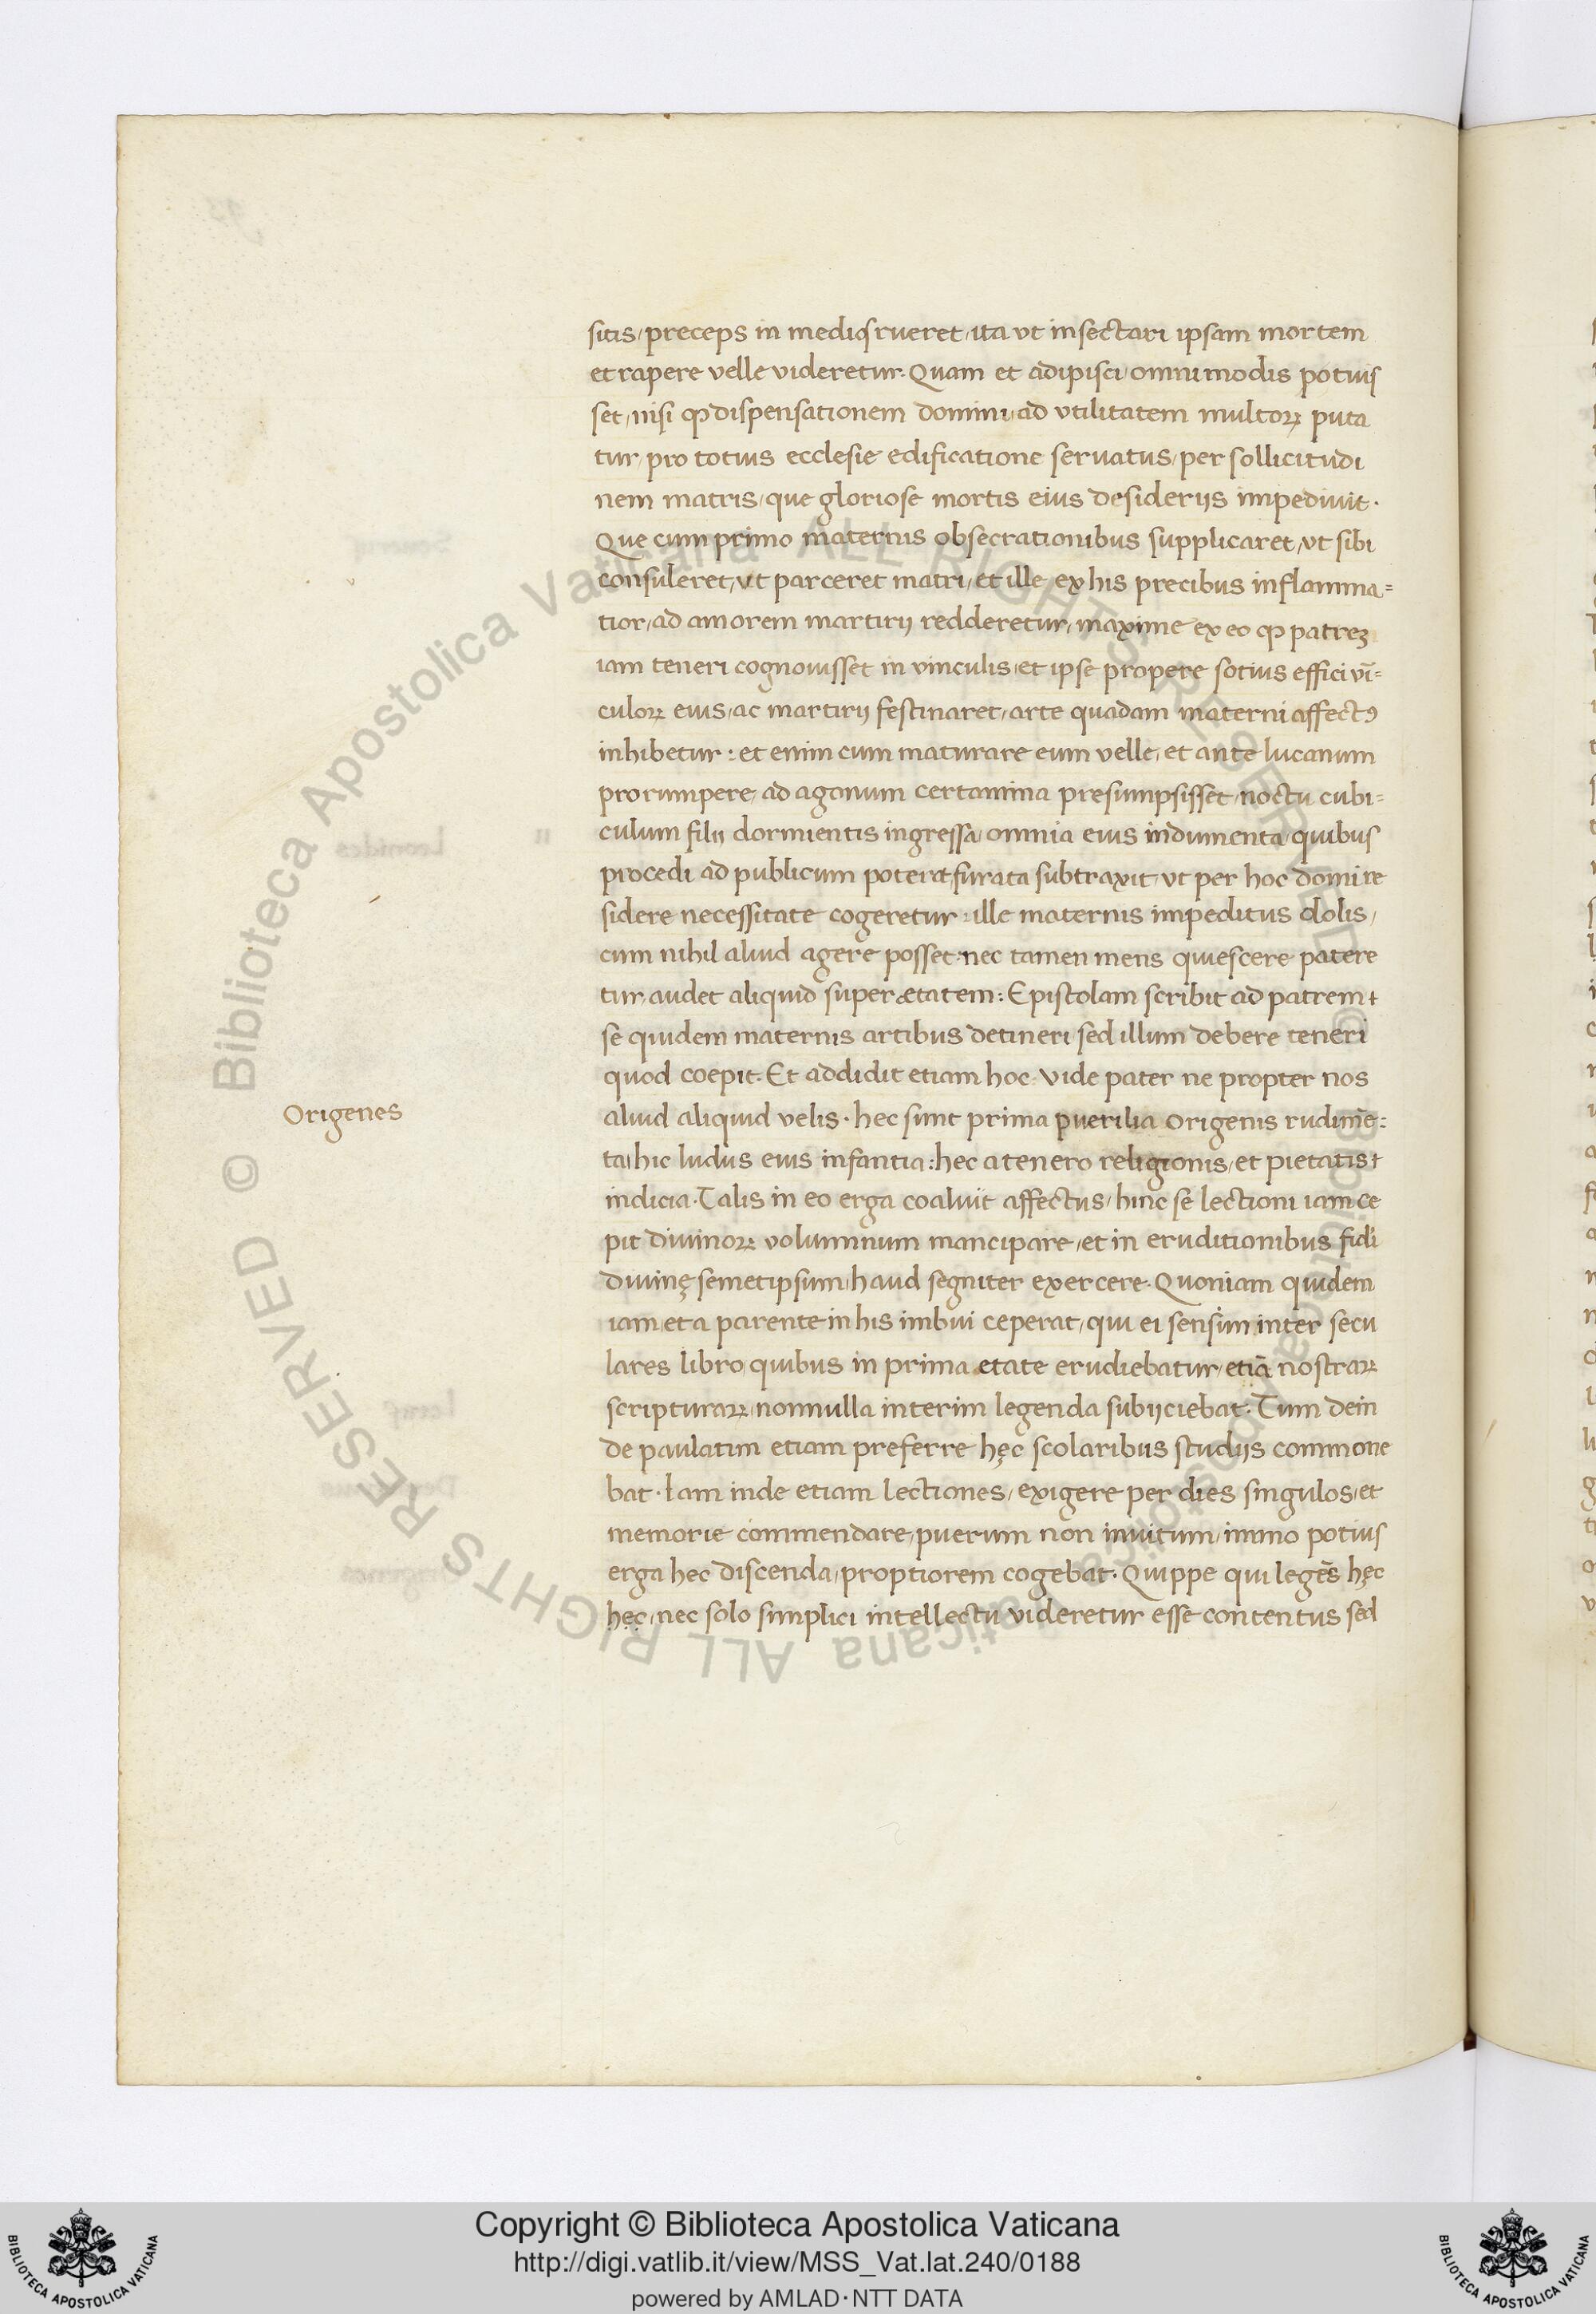 sitis, preceps in medios rueret, ita ut insectari ipsam mortem
et rapere velle videretur. Quam et adipisci omnimodis potuis
set, nisi ꝙ dispensationem domini, ad utilitatem multoꝝ puta
tur, pro totius ecclesie edificatione servatus, per sollicitudi
nem matris, que gloriose mortis eius desiderijs impedivit.
Que cum primo maternis obsecrationibus supplicaret, ut sibi
consuleret, ut parceret matri, et ille ex his precibus inflamma=
tior, ad amorem martirij redderetur, maxime ex eo ꝙ patreꝫ
iam teneri cognovisset in vinculis, et ipse propere sotius effici vī=
culoꝝ eius, ac martirij festinaret, arte quadam materni affectꝰ
inhibetur: et enim cum maturare eum velle, et ante lucanum
prorumpere, ad agonum certamina presumpsisset, noctu cubi=
culum filij dormientis ingressa, omnia eius indumenta quibus
procedi ad publicum poterat, furata subtraxit, ut per hoc domi re
sidere necessitate cogeretur: ille maternis impeditus dolis,
cum nihil aliud agere posset: nec tamen mens quiescere patere
tur, audet aliquid super etatem: Epistolam scribit ad patrem
se quidem maternis artibus detineri sed illum debere teneri
quod coepit. Et addidit etiam hoc. vide pater ne propter nos
Origenes
aliud aliquid velis. hec sunt prima puerilia Origenis rudimē=
ta, hic ludus eius infantia: hec a tenero religionis, et pietatis
indicia. Talis in eo erga coaluit affectus, hinc se lectioni iam ce
pit divinoꝝ voluminum mancipare, et in eruditionibus fidi
divinę semetipsum, haud segniter exercere. Quoniam quidem
iam et a parente in his imbui ceperat, qui ei sensim inter secu
lares libro, quibus in prima etate erudiebatur, etiā nostraꝝ
scripturaꝝ, nonnulla interim legenda subijciebat. Tum dein
de paulatim etiam preferre hęc scolaribus studijs commone
bat. Iam inde etiam lectiones, exigere per dies singulos, et
memorie commendare, puerum non invitum, immo potius
erga hec discenda, proptiorem cogebat. Quippe qui legēs hęc
hęc, nec solo simplici intellectu videretur esse contentus sed
© Biblioteca Apostolica Vaticana ALL RIGHTS RESERVED
© Biblioteca Apostolica Vaticana ALL RIGHTS RESERVED
Copyright © Biblioteca Apostolica Vaticana
http://digi.vatlib.it/view/MSS_Vat.lat.240/0188
powered by AMLAD·NTT DATA
BIBLIOTECA APOSTOLICA VATICANA
BIBLIOTECA APOSTOLICA VATICANA